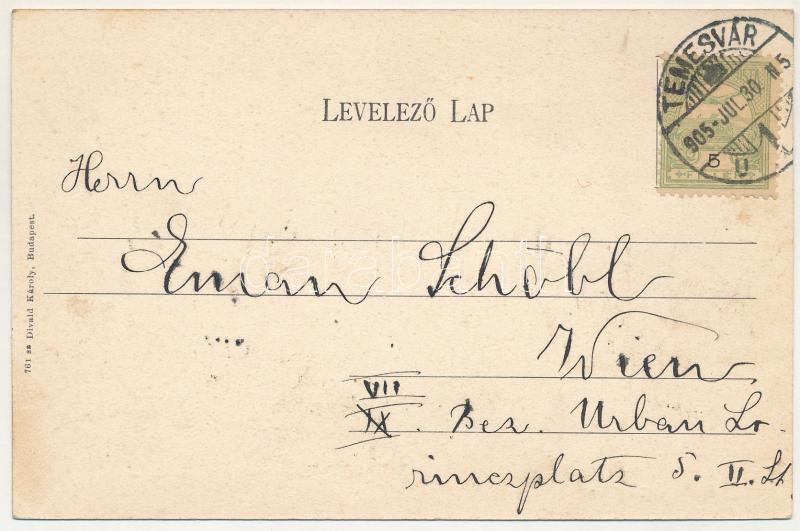 TEMESVÁR
905-JUL.30. N5
U 1
5
LEVELEZŐ LAP
Herrn
Eman Schobl
Wien
VII
IX. Bez. Urban Lo-
rinczplatz 5. II. St.
761 sz Divald Károly, Budapest.
darabanth